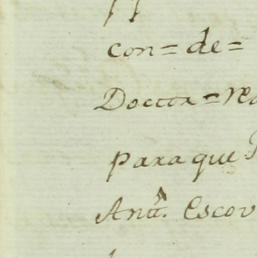 con = de =
Doctor = re
para que
Anta. Escov